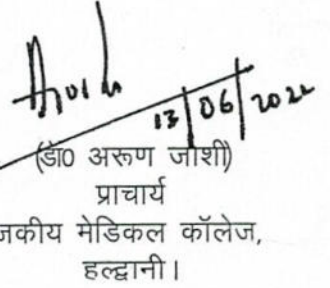 13/06/2022
(डॉ0 अरूण जोशी)
प्राचार्य
जकीय मेडिकल कॉलेज,
हल्द्वानी।